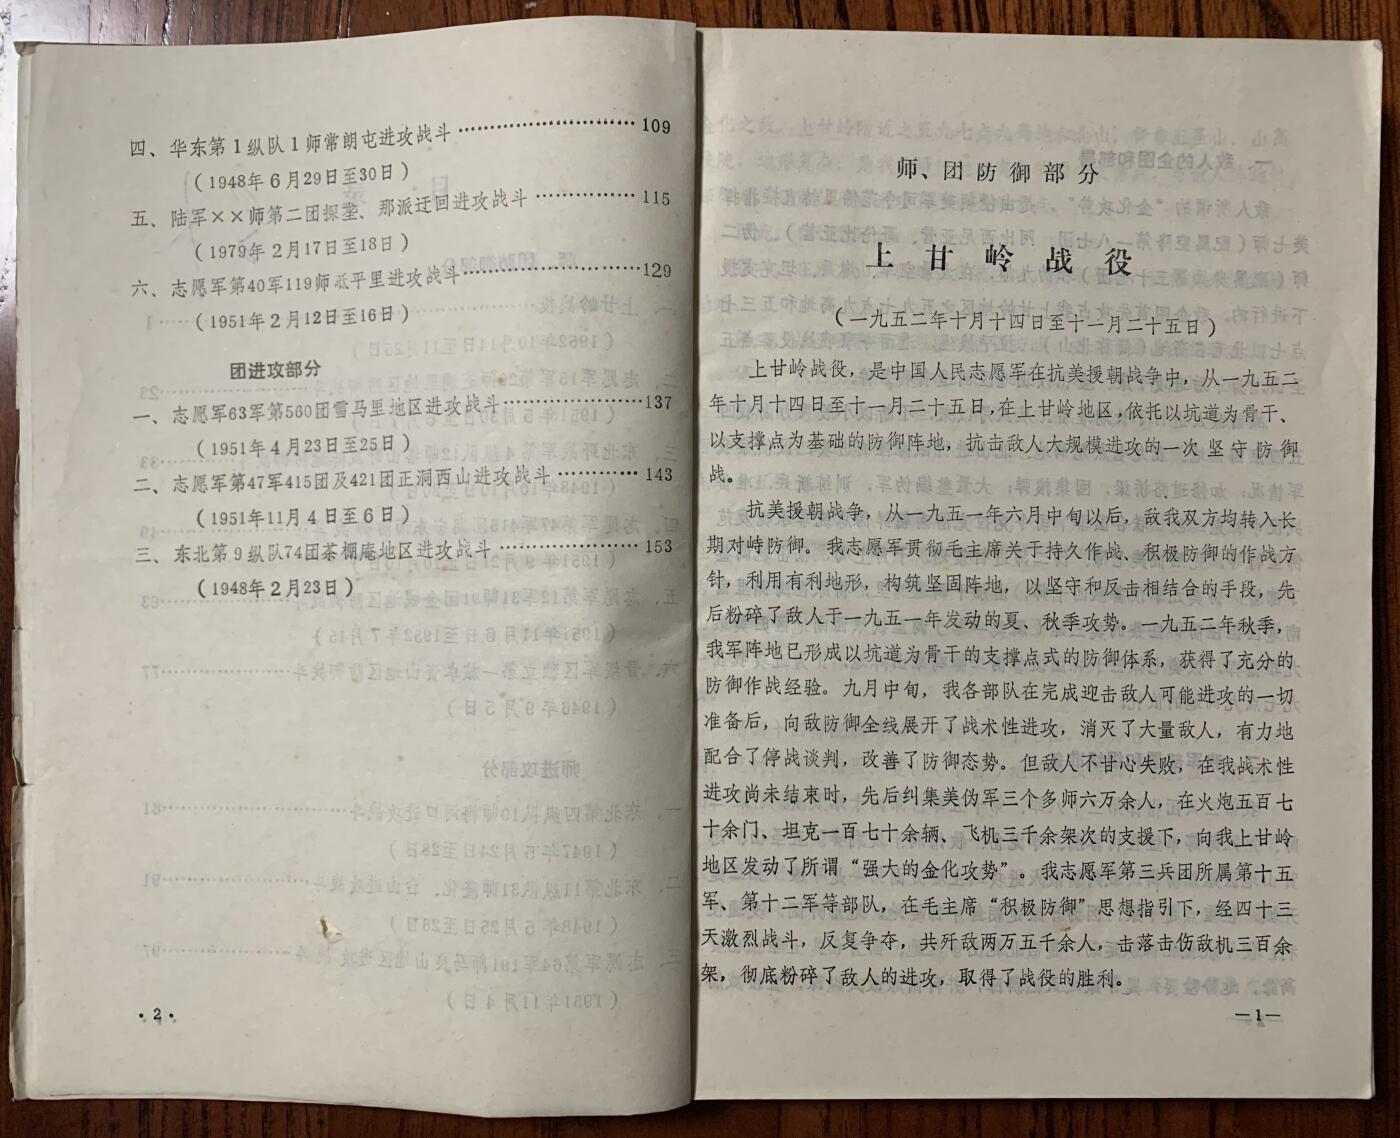 四、华东第1纵队1师常朗屯进攻战斗……………………109
(1948年6月29日至30日)
五、陆军××师第二团探垄、那派迂回进攻战斗……………115
(1979年2月17日至18日)
六、志愿军第40军119师砥平里进攻战斗……………………129
(1951年2月12日至16日)
团进攻部分
一、志愿军63军第560团雪马里地区进攻战斗………………137
(1951年4月23日至25日)
二、志愿军第47军415团及421团正洞西山进攻战斗…………143
(1951年11月4日至6日)
三、东北第9纵队74团茶棚庵地区进攻战斗…………………153
(1948年2月23日)
·2·
师、团防御部分
上甘岭战役
(一九五二年十月十四日至十一月二十五日)
上甘岭战役，是中国人民志愿军在抗美援朝战争中，从一九五二
年十月十四日至十一月二十五日，在上甘岭地区，依托以坑道为骨干、
以支撑点为基础的防御阵地，抗击敌人大规模进攻的一次坚守防御
战。
抗美援朝战争，从一九五一年六月中旬以后，敌我双方均转入长
期对峙防御。我志愿军贯彻毛主席关于持久作战、积极防御的作战方
针，利用有利地形，构筑坚固阵地，以坚守和反击相结合的手段，先
后粉碎了敌人于一九五一年发动的夏、秋季攻势。一九五二年秋季，
我军阵地已形成以坑道为骨干的支撑点式的防御体系，获得了充分的
防御作战经验。九月中旬，我各部队在完成迎击敌人可能进攻的一切
准备后，向敌防御全线展开了战术性进攻，消灭了大量敌人，有力地
配合了停战谈判，改善了防御态势。但敌人不甘心失败，在我战术性
进攻尚未结束时，先后纠集美伪军三个多师六万余人，在火炮五百七
十余门、坦克一百七十余辆、飞机三千余架次的支援下，向我上甘岭
地区发动了所谓“强大的金化攻势”。我志愿军第三兵团所属第十五
军、第十二军等部队，在毛主席“积极防御”思想指引下，经四十三
天激烈战斗，反复争夺，共歼敌两万五千余人，击落击伤敌机三百余
架，彻底粉碎了敌人的进攻，取得了战役的胜利。
—1—